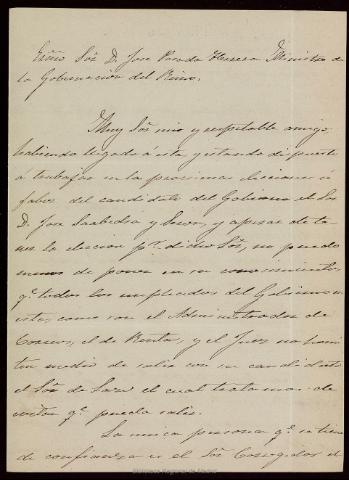 Exmo Sor D. Jose Posada Herrera Ministro de
la Gobernacion del Reino.
Muy Sor mio y respetable amigo
habiendo llegado á esta, y estando dispuesto
á trabajar en la proximas elecciones á
favor del candidato del Gobierno el Sor
D. Jose Saabedra y apesar de
la eleccion pr. dicho Sor, no puedo
menos de poner en su conocimiento,
qe. todos los empleados del Gobierno en
esta, como son el Administrador de
Correos, el de Rentas, y el Juez no
ten medio de salir con su candidato
el Sor de el cual tratamos de
evitar qe. pueda salir.
La unica persona qe. se tiene
de confianza es el Sor Corregidor el